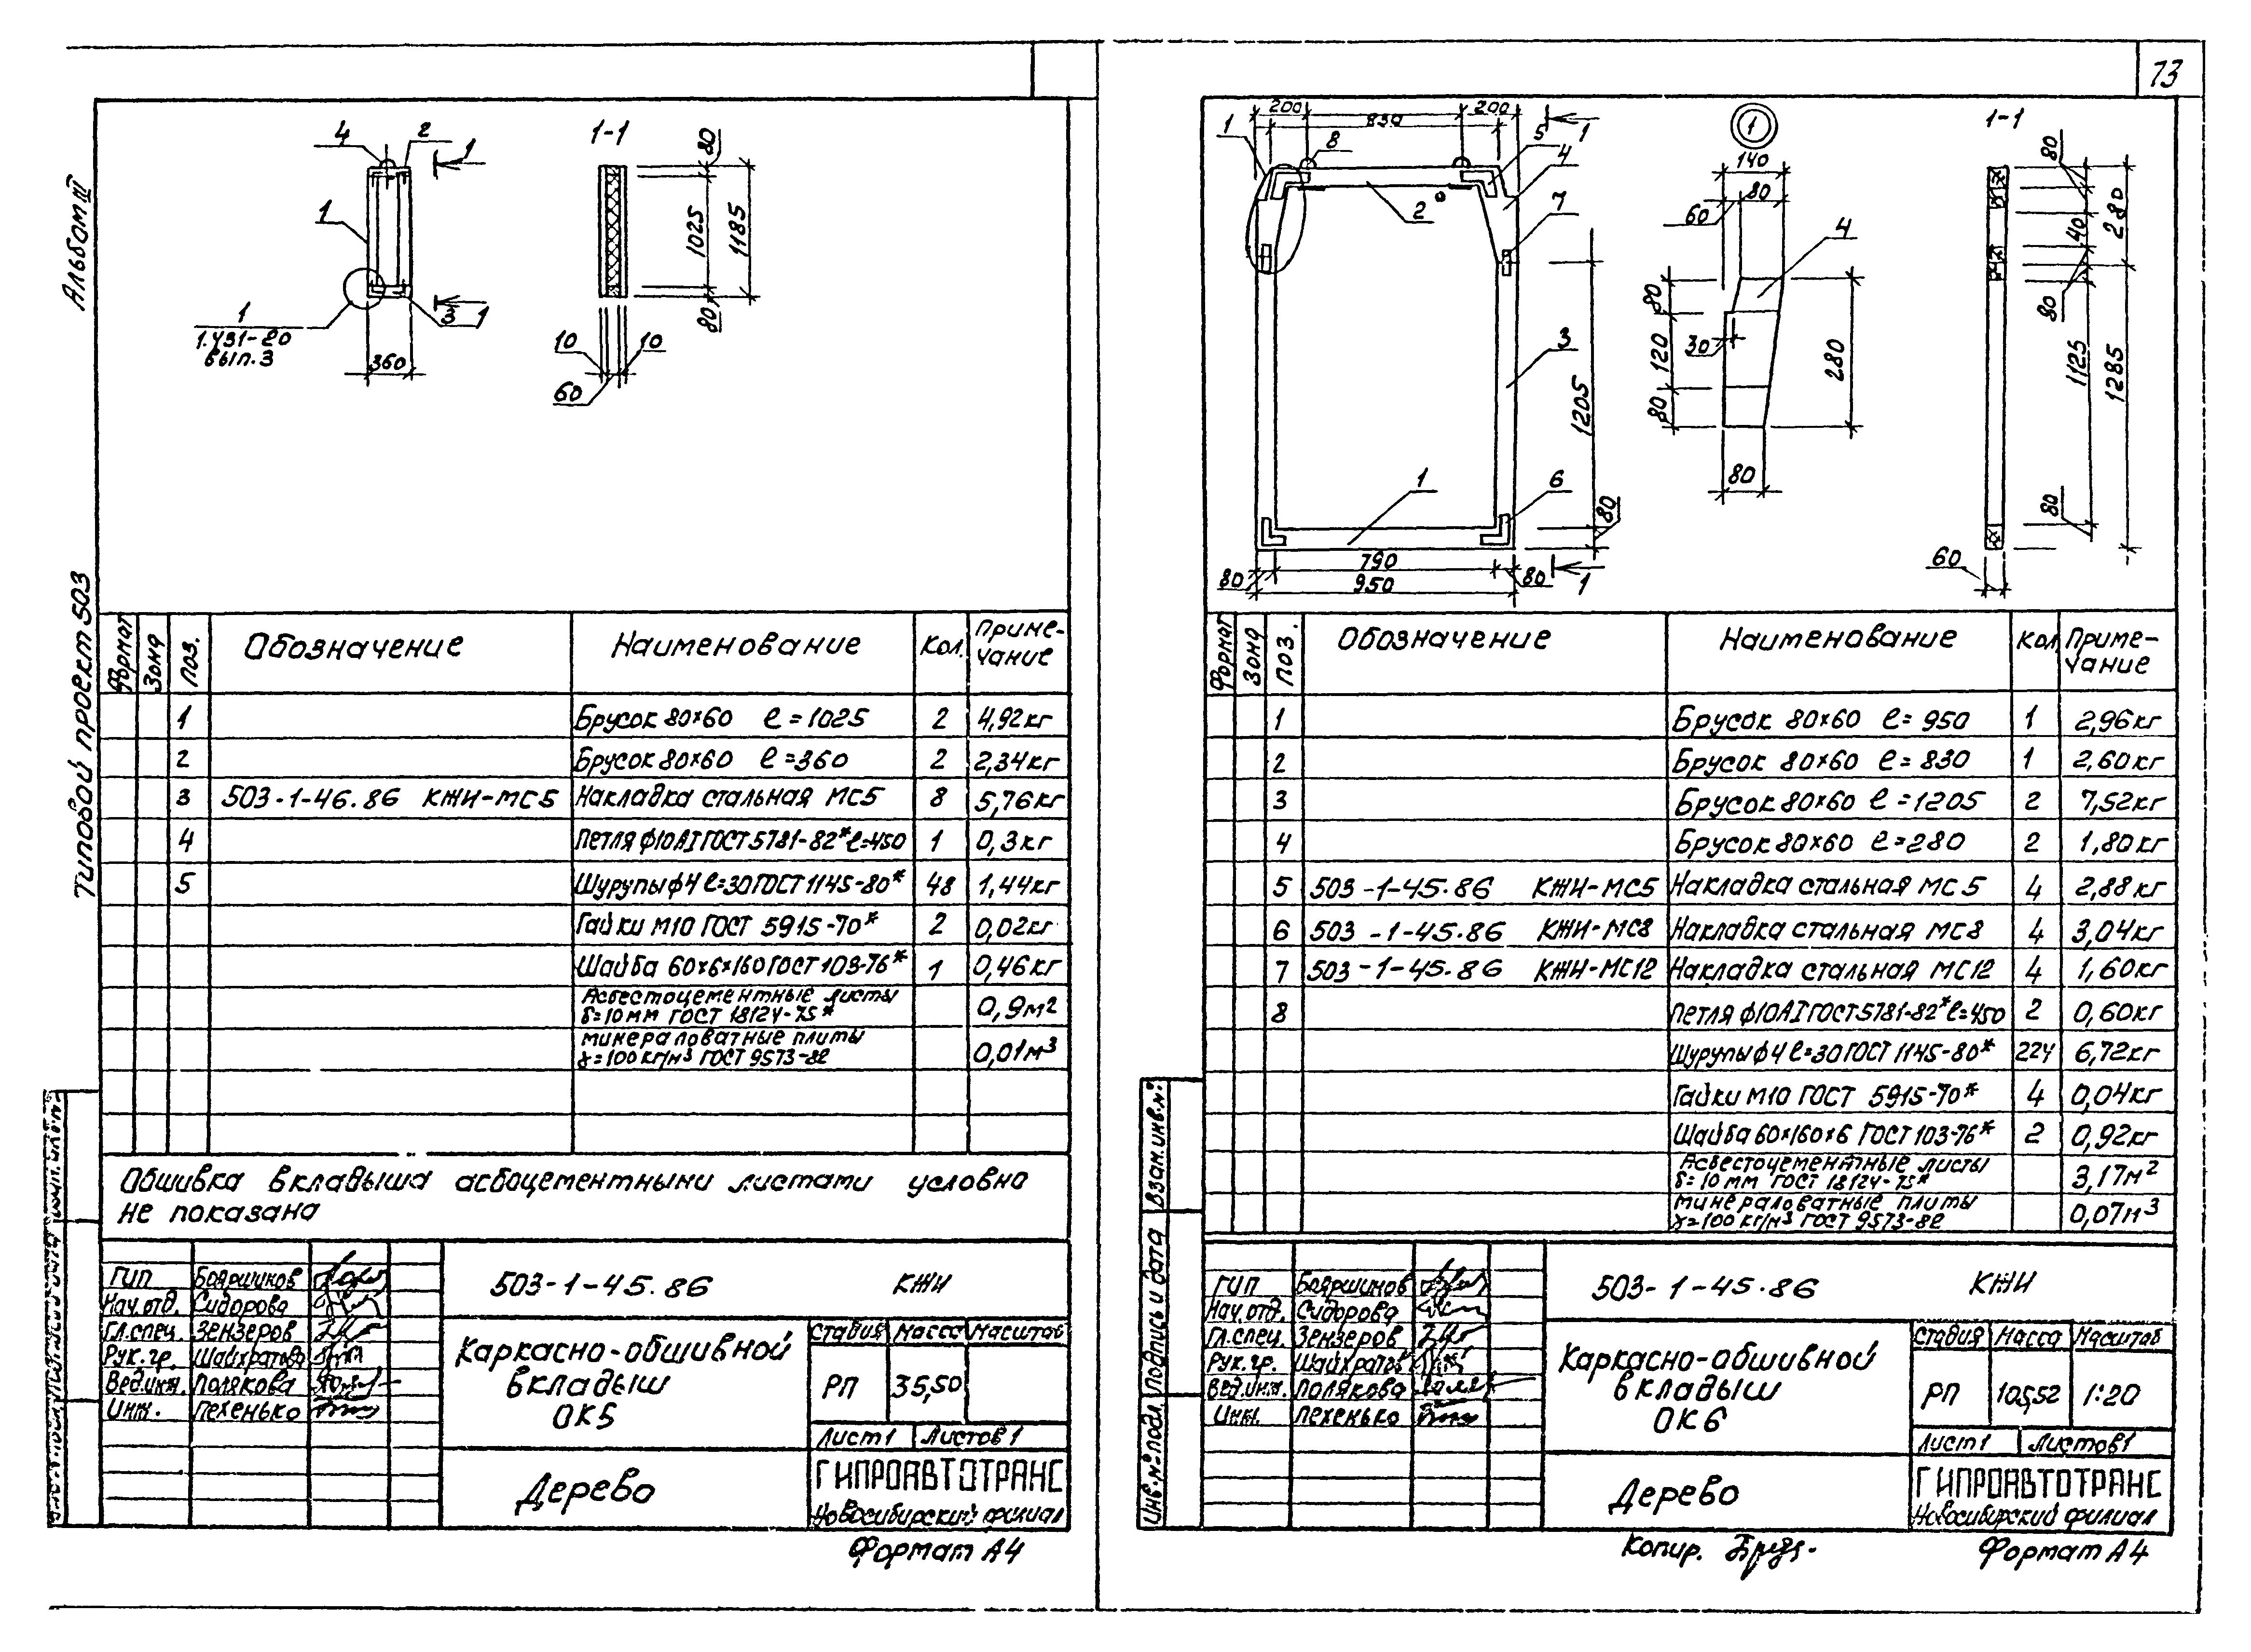 73
Альбом III
Типовой проект 503
4
2
1
1
1
1.431-20
вып.3
3
1
360
1-1
80
1025
1185
80
10
10
60
Формат
Зона
Поз.
Обозначение
Наименование
Кол.
Приме-
чание
1 Брусок 80х60 ℓ=1025 2 4,92кг
2 Брусок 80х60 ℓ=360 2 2,34кг
3 503-1-46.86 КЖИ-МС5 Накладка стальная МС5 8 5,76кг
4 Петля ф10АI ГОСТ 5781-82* ℓ=450 1 0,3кг
5 Шурупы ф4 ℓ=30 ГОСТ 1145-80* 48 1,44кг
Гайки М10 ГОСТ 5915-70* 2 0,02кг
Шайба 60х6х160 ГОСТ 103-76* 1 0,46кг
Асбестоцементные листы
δ=10мм ГОСТ 18124-75* 0,9м²
минераловатные плиты
γ=100кг/м³ ГОСТ 9573-82 0,01м³
Обшивка вкладыша асбоцементными листами условно
не показана
ГИП Бояршинов
Нач.отд. Сидорова
Гл.спец. Зензеров
Рук.гр. Шайхратова
Вед.инж. Полякова
Инж. Пехенько
503-1-45.86 КЖИ
Каркасно-обшивной
вкладыш
ОК5
Стадия Масса Масштаб
РП 35,50
Лист 1 Листов 1
Дерево
ГИПРОАВТОТРАНС
Новосибирский филиал
Формат А4
200
830
200
1
1
8
5
4
2
7
3
1205
1
6
80
790
80
950
80
1
1
140
80
60
4
80
30
120
80
280
80
1-1
80
280
40
80
1125
1285
80
60
Формат
Зона
Поз.
Обозначение
Наименование
Кол
Приме-
чание
1 Брусок 80х60 ℓ=950 1 2,96кг
2 Брусок 80х60 ℓ=830 1 2,60кг
3 Брусок 80х60 ℓ=1205 2 7,52кг
4 Брусок 80х60 ℓ=280 2 1,80кг
5 503-1-45.86 КЖИ-МС5 Накладка стальная МС5 4 2,88кг
6 503-1-45.86 КЖИ-МС8 Накладка стальная МС8 4 3,04кг
7 503-1-45.86 КЖИ-МС12 Накладка стальная МС12 4 1,60кг
8 Петля ф10АI ГОСТ 5781-82* ℓ=450 2 0,60кг
Шурупы ф4 ℓ=30 ГОСТ 1145-80* 224 6,72кг
Гайки М10 ГОСТ 5915-70* 4 0,04кг
Шайба 60х160х6 ГОСТ 103-76* 2 0,92кг
Асбестоцементные листы
δ=10мм ГОСТ 18124-75* 3,17м²
минераловатные плиты
γ=100кг/м³ ГОСТ 9573-82 0,07м³
Взам.инв.№
Подпись и дата
Инв.№подл.
ГИП Бояршинов
Нач.отд. Сидорова
Гл.спец. Зензеров
Рук.гр. Шайхратов
Вед.инж. Полякова
Инж. Пехенько
503-1-45.86 КЖИ
Каркасно-обшивной
вкладыш
ОК6
Стадия Масса Масштаб
РП 105,52 1:20
Лист 1 Листов 1
Дерево
ГИПРОАВТОТРАНС
Новосибирский филиал
Копир.
Формат А4